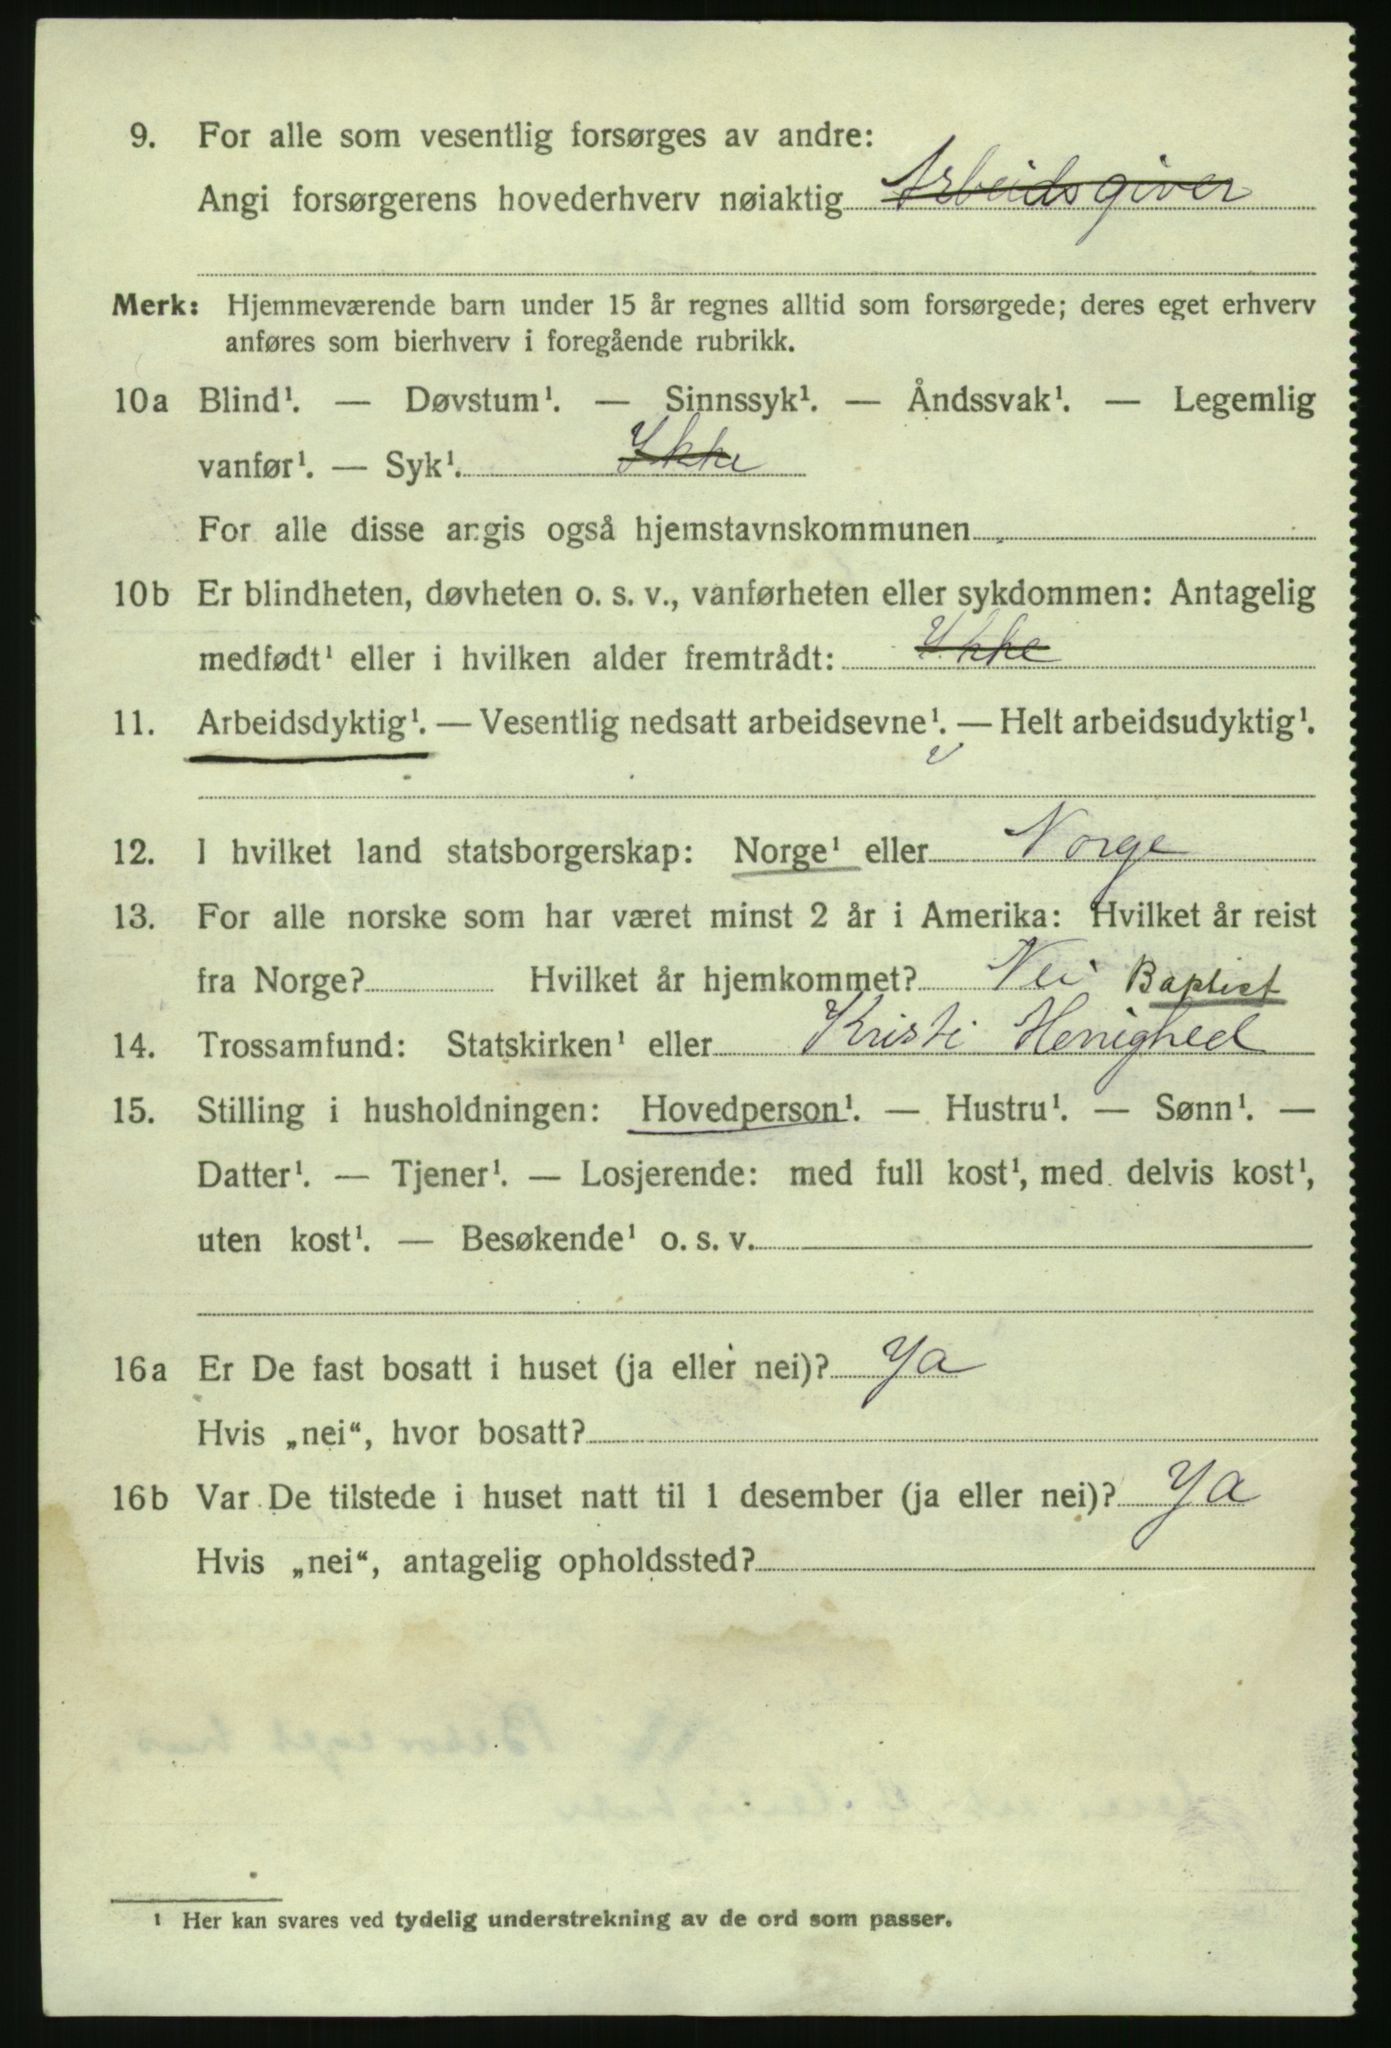 9. For alle som vesentlig forsørges av andre:
Angi forsørgerens hovederhverv nøiaktig Arbeidsgiver
Merk: Hjemmeværende barn under 15 år regnes alltid som forsørgede; deres eget erhverv
anføres som bierhverv i foregående rubrikk.
10a Blind¹. — Døvstum¹. — Sinnssyk¹. — Åndssvak¹. — Legemlig
vanfør¹. — Syk¹. Ikke
For alle disse angis også hjemstavnskommunen
10b Er blindheten, døvheten o. s. v., vanførheten eller sykdommen: Antagelig
medfødt¹ eller i hvilken alder fremtrådt: Ikke
11. Arbeidsdyktig¹. — Vesentlig nedsatt arbeidsevne¹. — Helt arbeidsudyktig¹.
12. I hvilket land statsborgerskap: Norge¹ eller Norge
13. For alle norske som har været minst 2 år i Amerika: Hvilket år reist
fra Norge? Hvilket år hjemkommet? Nei Baptist
14. Trossamfund: Statskirken¹ eller Kristi Menighed
15. Stilling i husholdningen: Hovedperson¹. — Hustru¹. — Sønn¹. —
Datter¹. — Tjener¹. — Losjerende: med full kost¹, med delvis kost¹,
uten kost¹. — Besøkende¹ o. s. v.
16a Er De fast bosatt i huset (ja eller nei)? Ja
Hvis „nei“, hvor bosatt?
16b Var De tilstede i huset natt til 1 desember (ja eller nei)? Ja
Hvis „nei“, antagelig opholdssted?
¹ Her kan svares ved tydelig understrekning av de ord som passer.